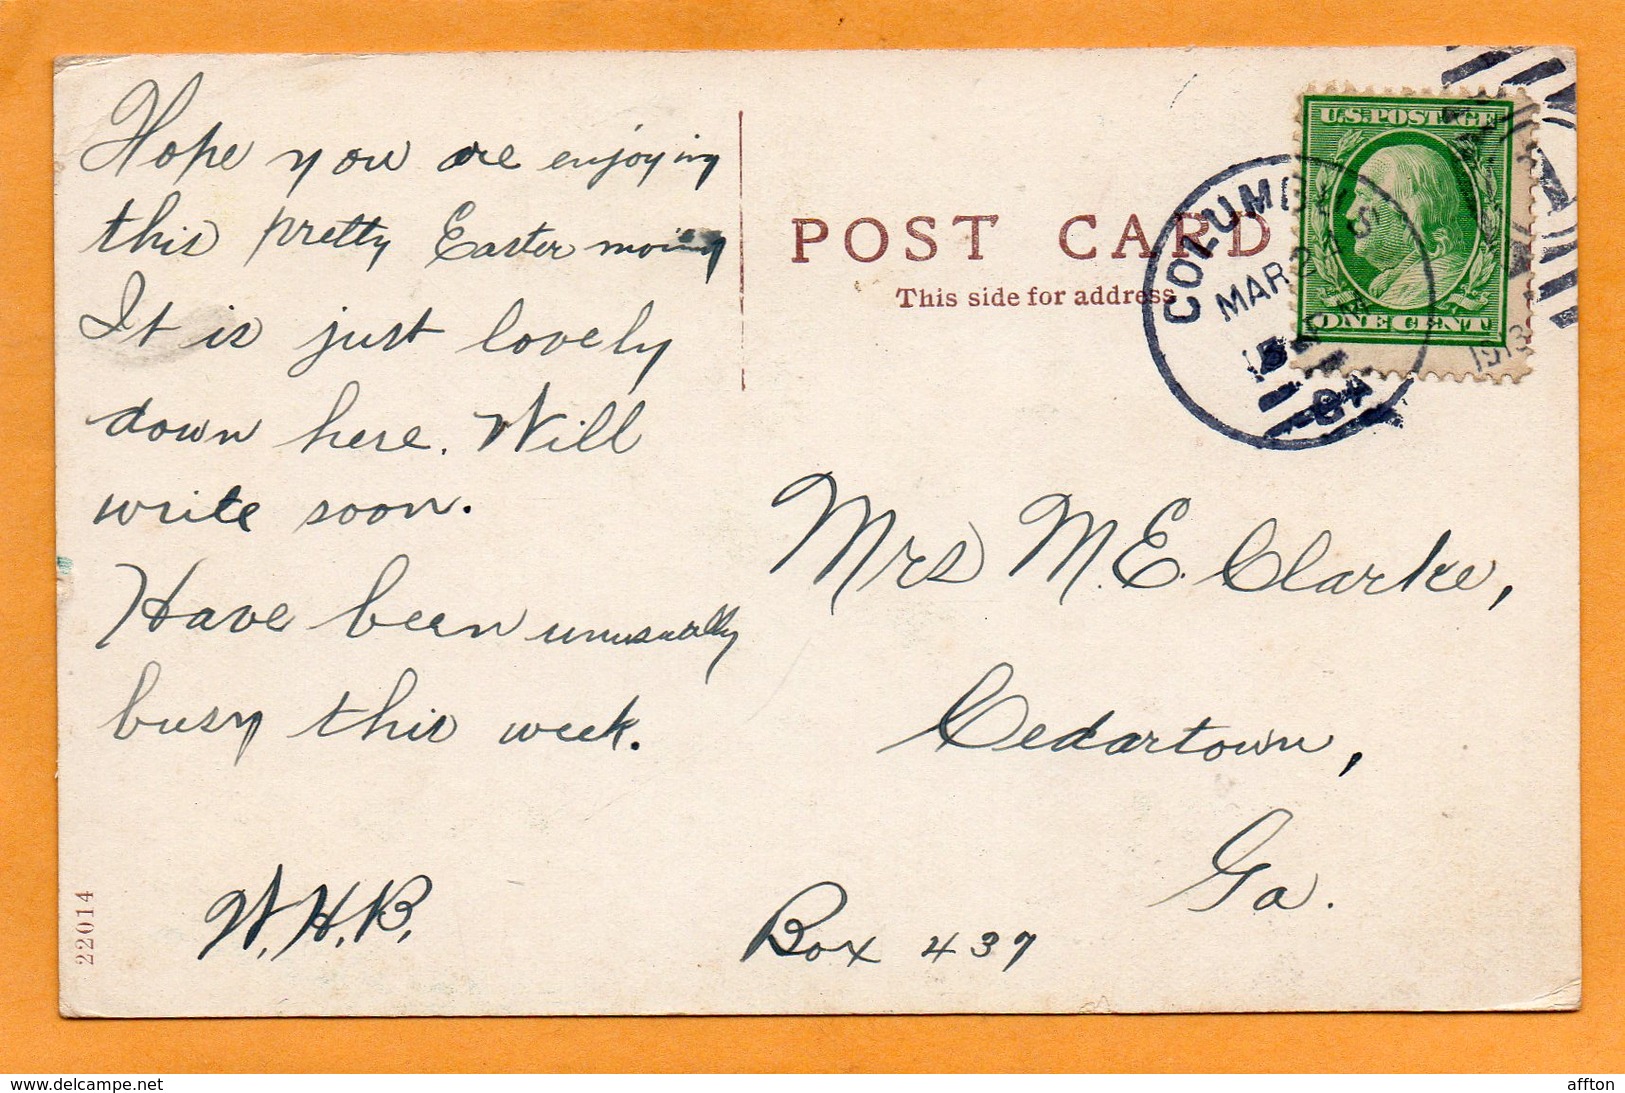 Hope you are enjoying
this pretty Easter morning
It is just lovely
down here. Will
write soon.
Have been unusually
busy this week.
W.H.B.
22014
POST CARD
This side for address
COLUMBUS
MAR
1913
GA
U.S. POSTAGE
ONE CENT
Mrs M.E. Clarke,
Cedartown,
Ga.
Box 437
www.delcampe.net
affton